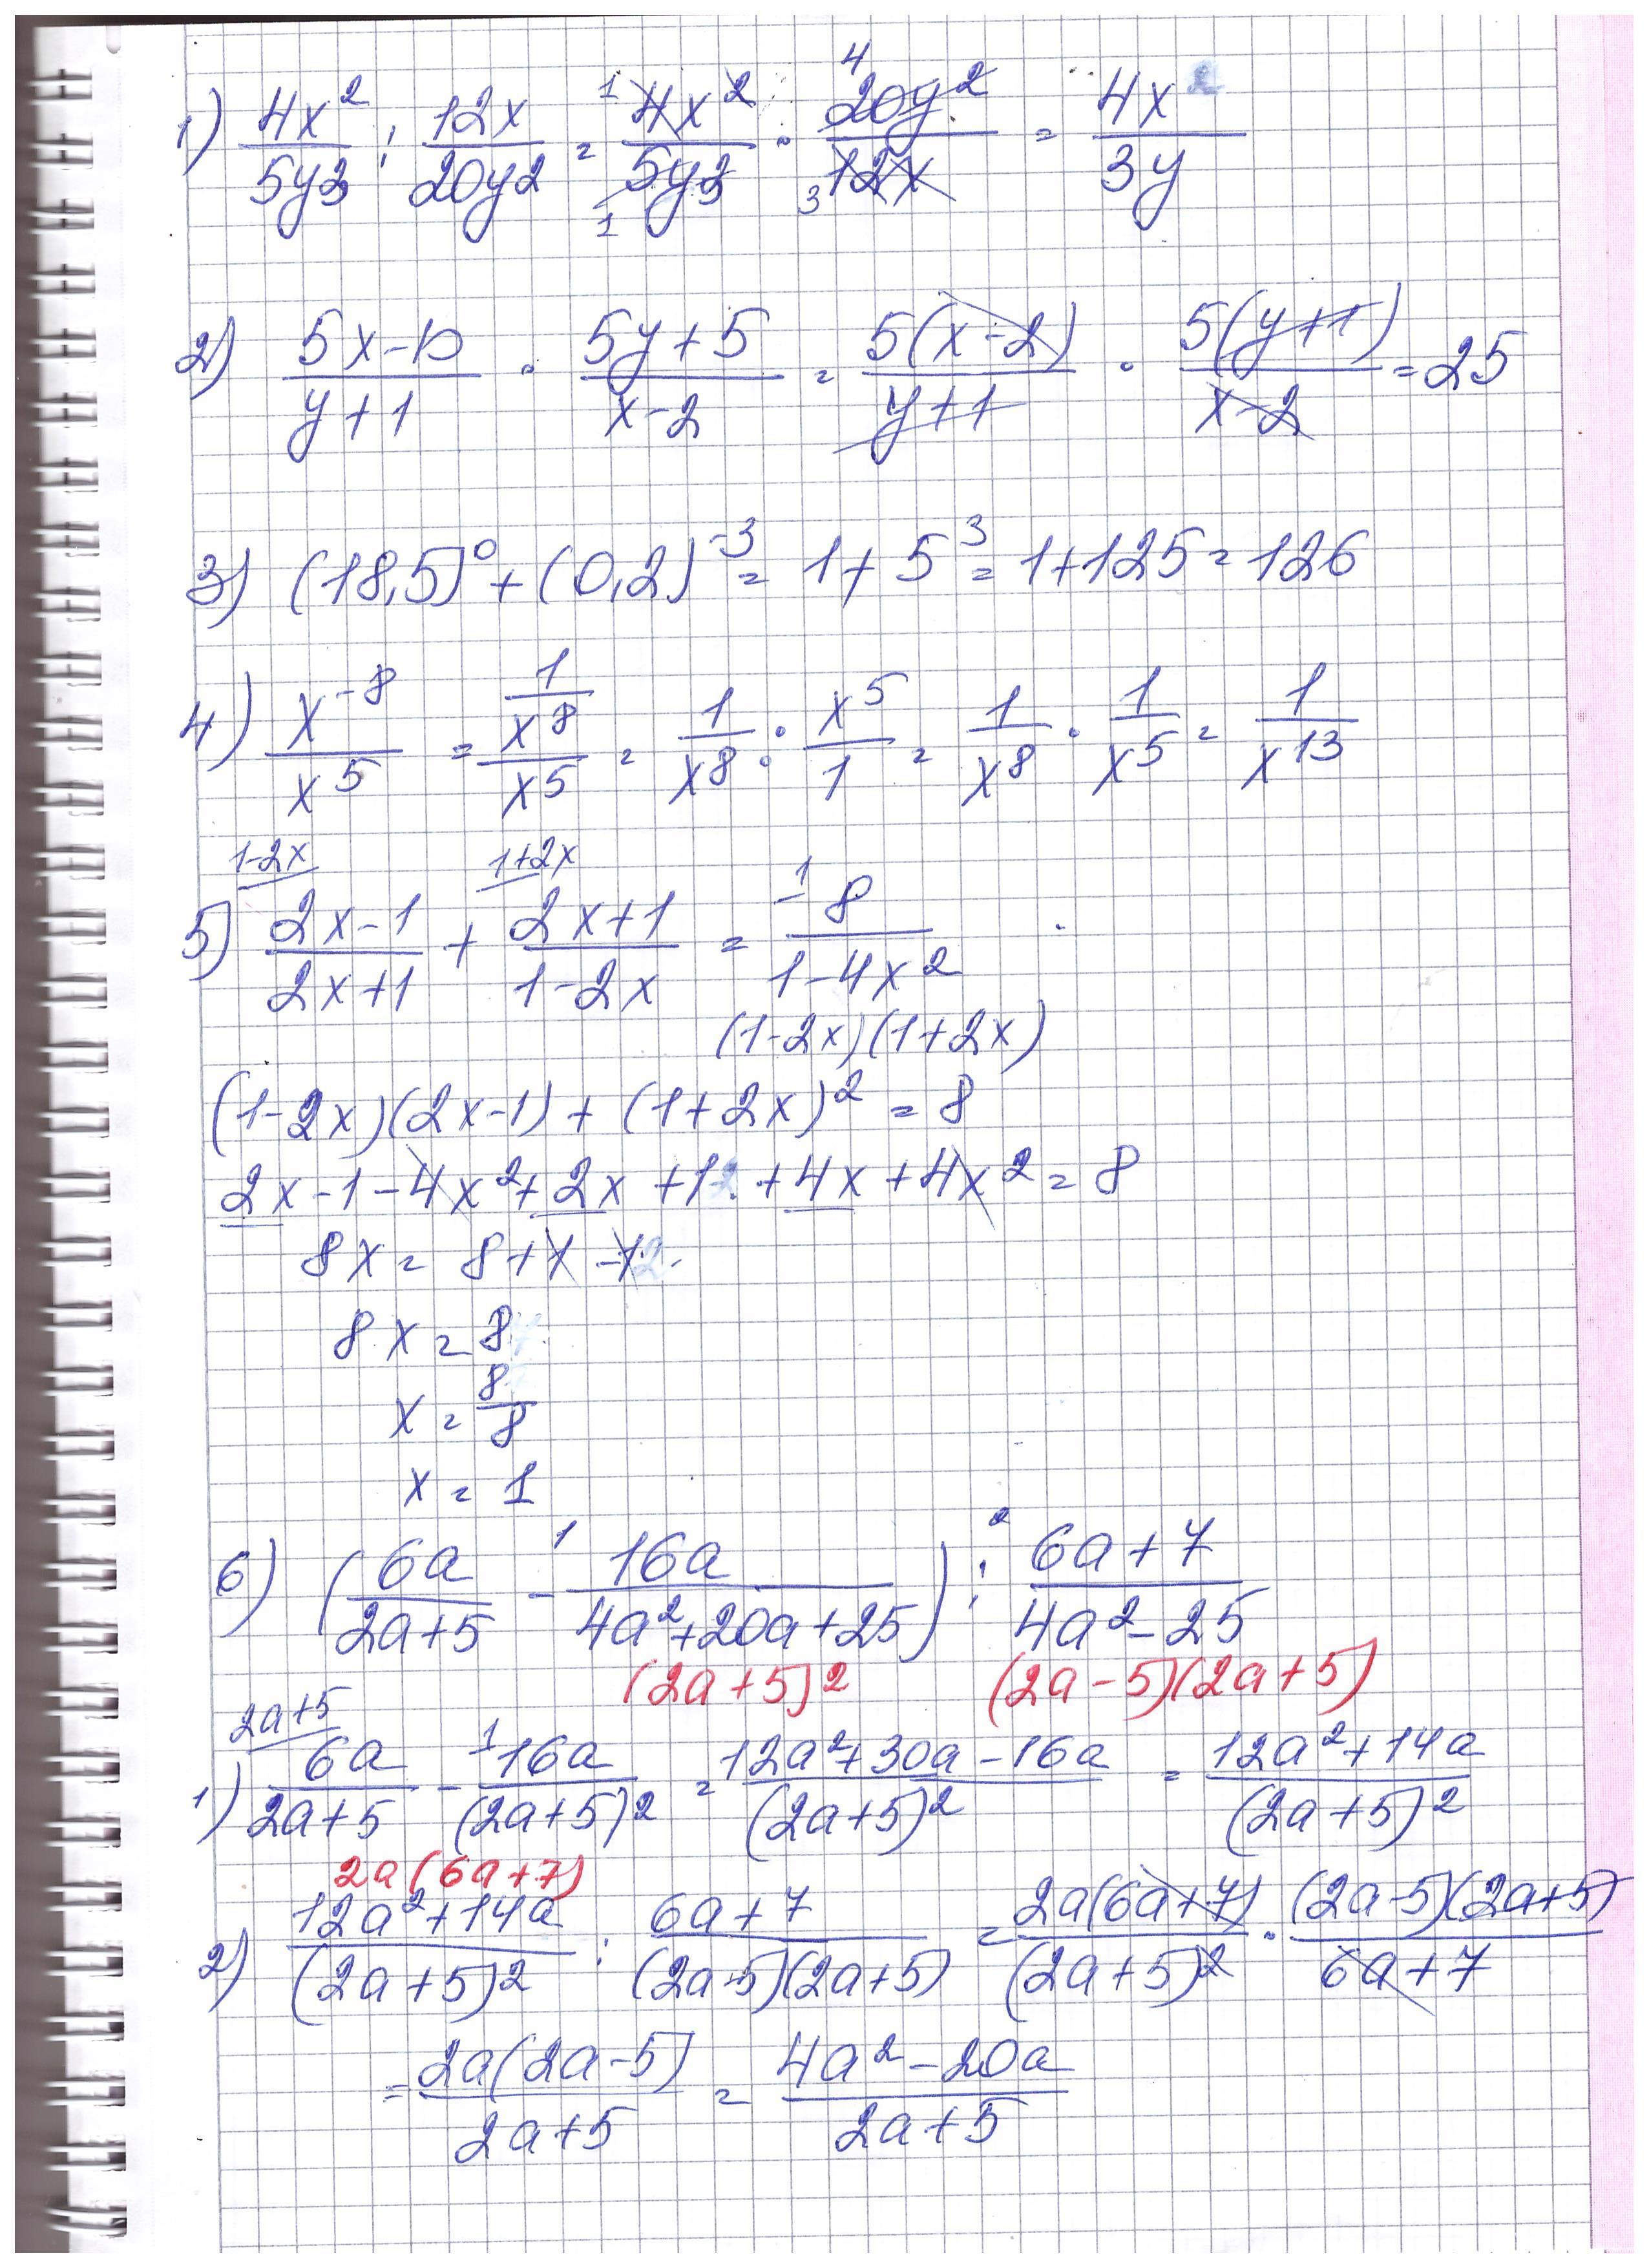 1) 4x²/5y³ : 12x/20y² = 4x²/5y³ · 20y²/12x = 4x/3y
2) 5x-10/y+1 · 5y+5/x-2 = 5(x-2)/y+1 · 5(y+1)/x-2 = 25
3) (18,5)⁰ + (0,2)⁻³ = 1 + 5³ = 1+125 = 126
4) x⁻⁸/x⁵ = 1/x⁸/x⁵ = 1/x⁸ : x⁵/1 = 1/x⁸ · 1/x⁵ = 1/x¹³
1-2x 1+2x 1
5) 2x-1/2x+1 + 2x+1/1-2x = 8/1-4x²
(1-2x)(1+2x)
(1-2x)(2x-1) + (1+2x)² = 8
2x-1-4x²+2x+1+4x+4x² = 8
8x = 8+1-1
8x = 8
x = 8/8
x = 1
6) (6a/2a+5 - 16a/4a²+20a+25) : 6a+7/4a²-25
(2a+5)² (2a-5)(2a+5)
2a+5 1
1) 6a/2a+5 - 16a/(2a+5)² = 12a²+30a-16a/(2a+5)² = 12a²+14a/(2a+5)²
2a(6a+7)
2) 12a²+14a/(2a+5)² : 6a+7/(2a-5)(2a+5) = 2a(6a+7)/(2a+5)² · (2a-5)(2a+5)/6a+7
= 2a(2a-5)/2a+5 = 4a²-20a/2a+5